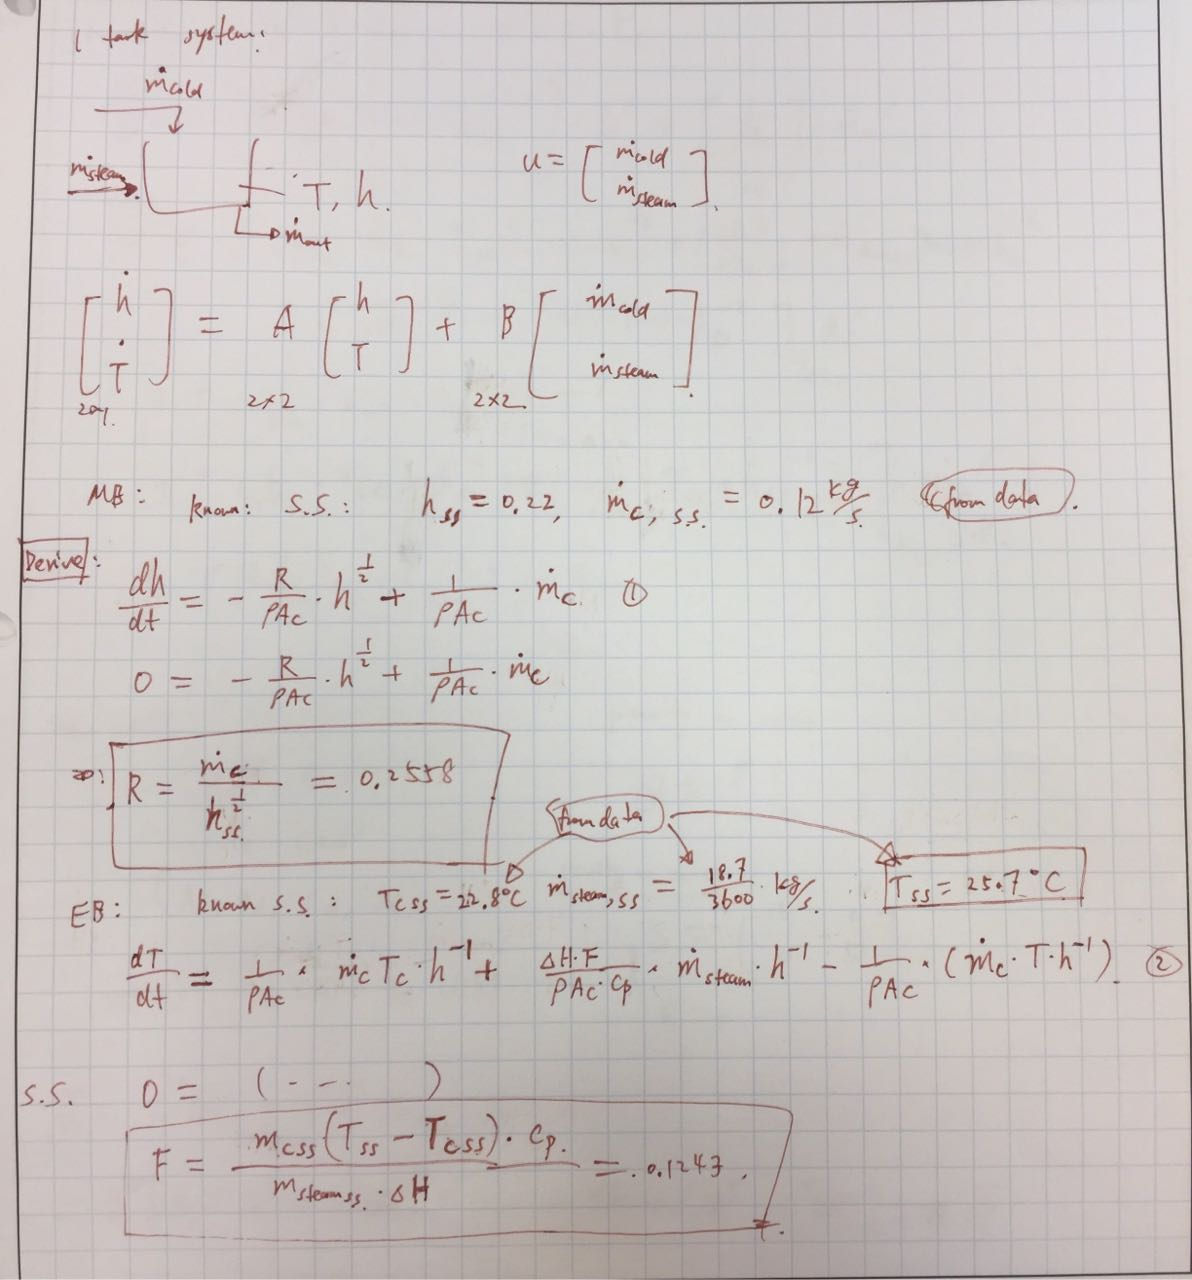 1 tank system:
ṁcold
ṁsteam
T, h.
ṁout
u = [ ṁcold
ṁsteam ]
[ ḣ
Ṫ ] = A [ h
T ] + B [ ṁcold
ṁsteam ]
2×2 2×2
MB: known: S.S.: hss = 0.22, ṁc, s.s. = 0.12 kg/s. (from data).
Derive:
dh/dt = - R/ρAc · h^1/2 + 1/ρAc · ṁc. ①
0 = - R/ρAc · h^1/2 + 1/ρAc · ṁc
R = ṁc / hss^1/2 = 0.2558
from data
EB: known s.s.: Tcss = 22.8°C ṁsteam,ss = 18.7/3600 · kg/s. Tss = 25.7°C
dT/dt = 1/ρAc · ṁc Tc · h^-1 + ΔH·F/ρAc·cp · ṁsteam · h^-1 - 1/ρAc · (ṁc · T · h^-1). ②
S.S. 0 = (--- )
F = mcss (Tss - Tcss) · cp. / msteamss. · ΔH = 0.1247.